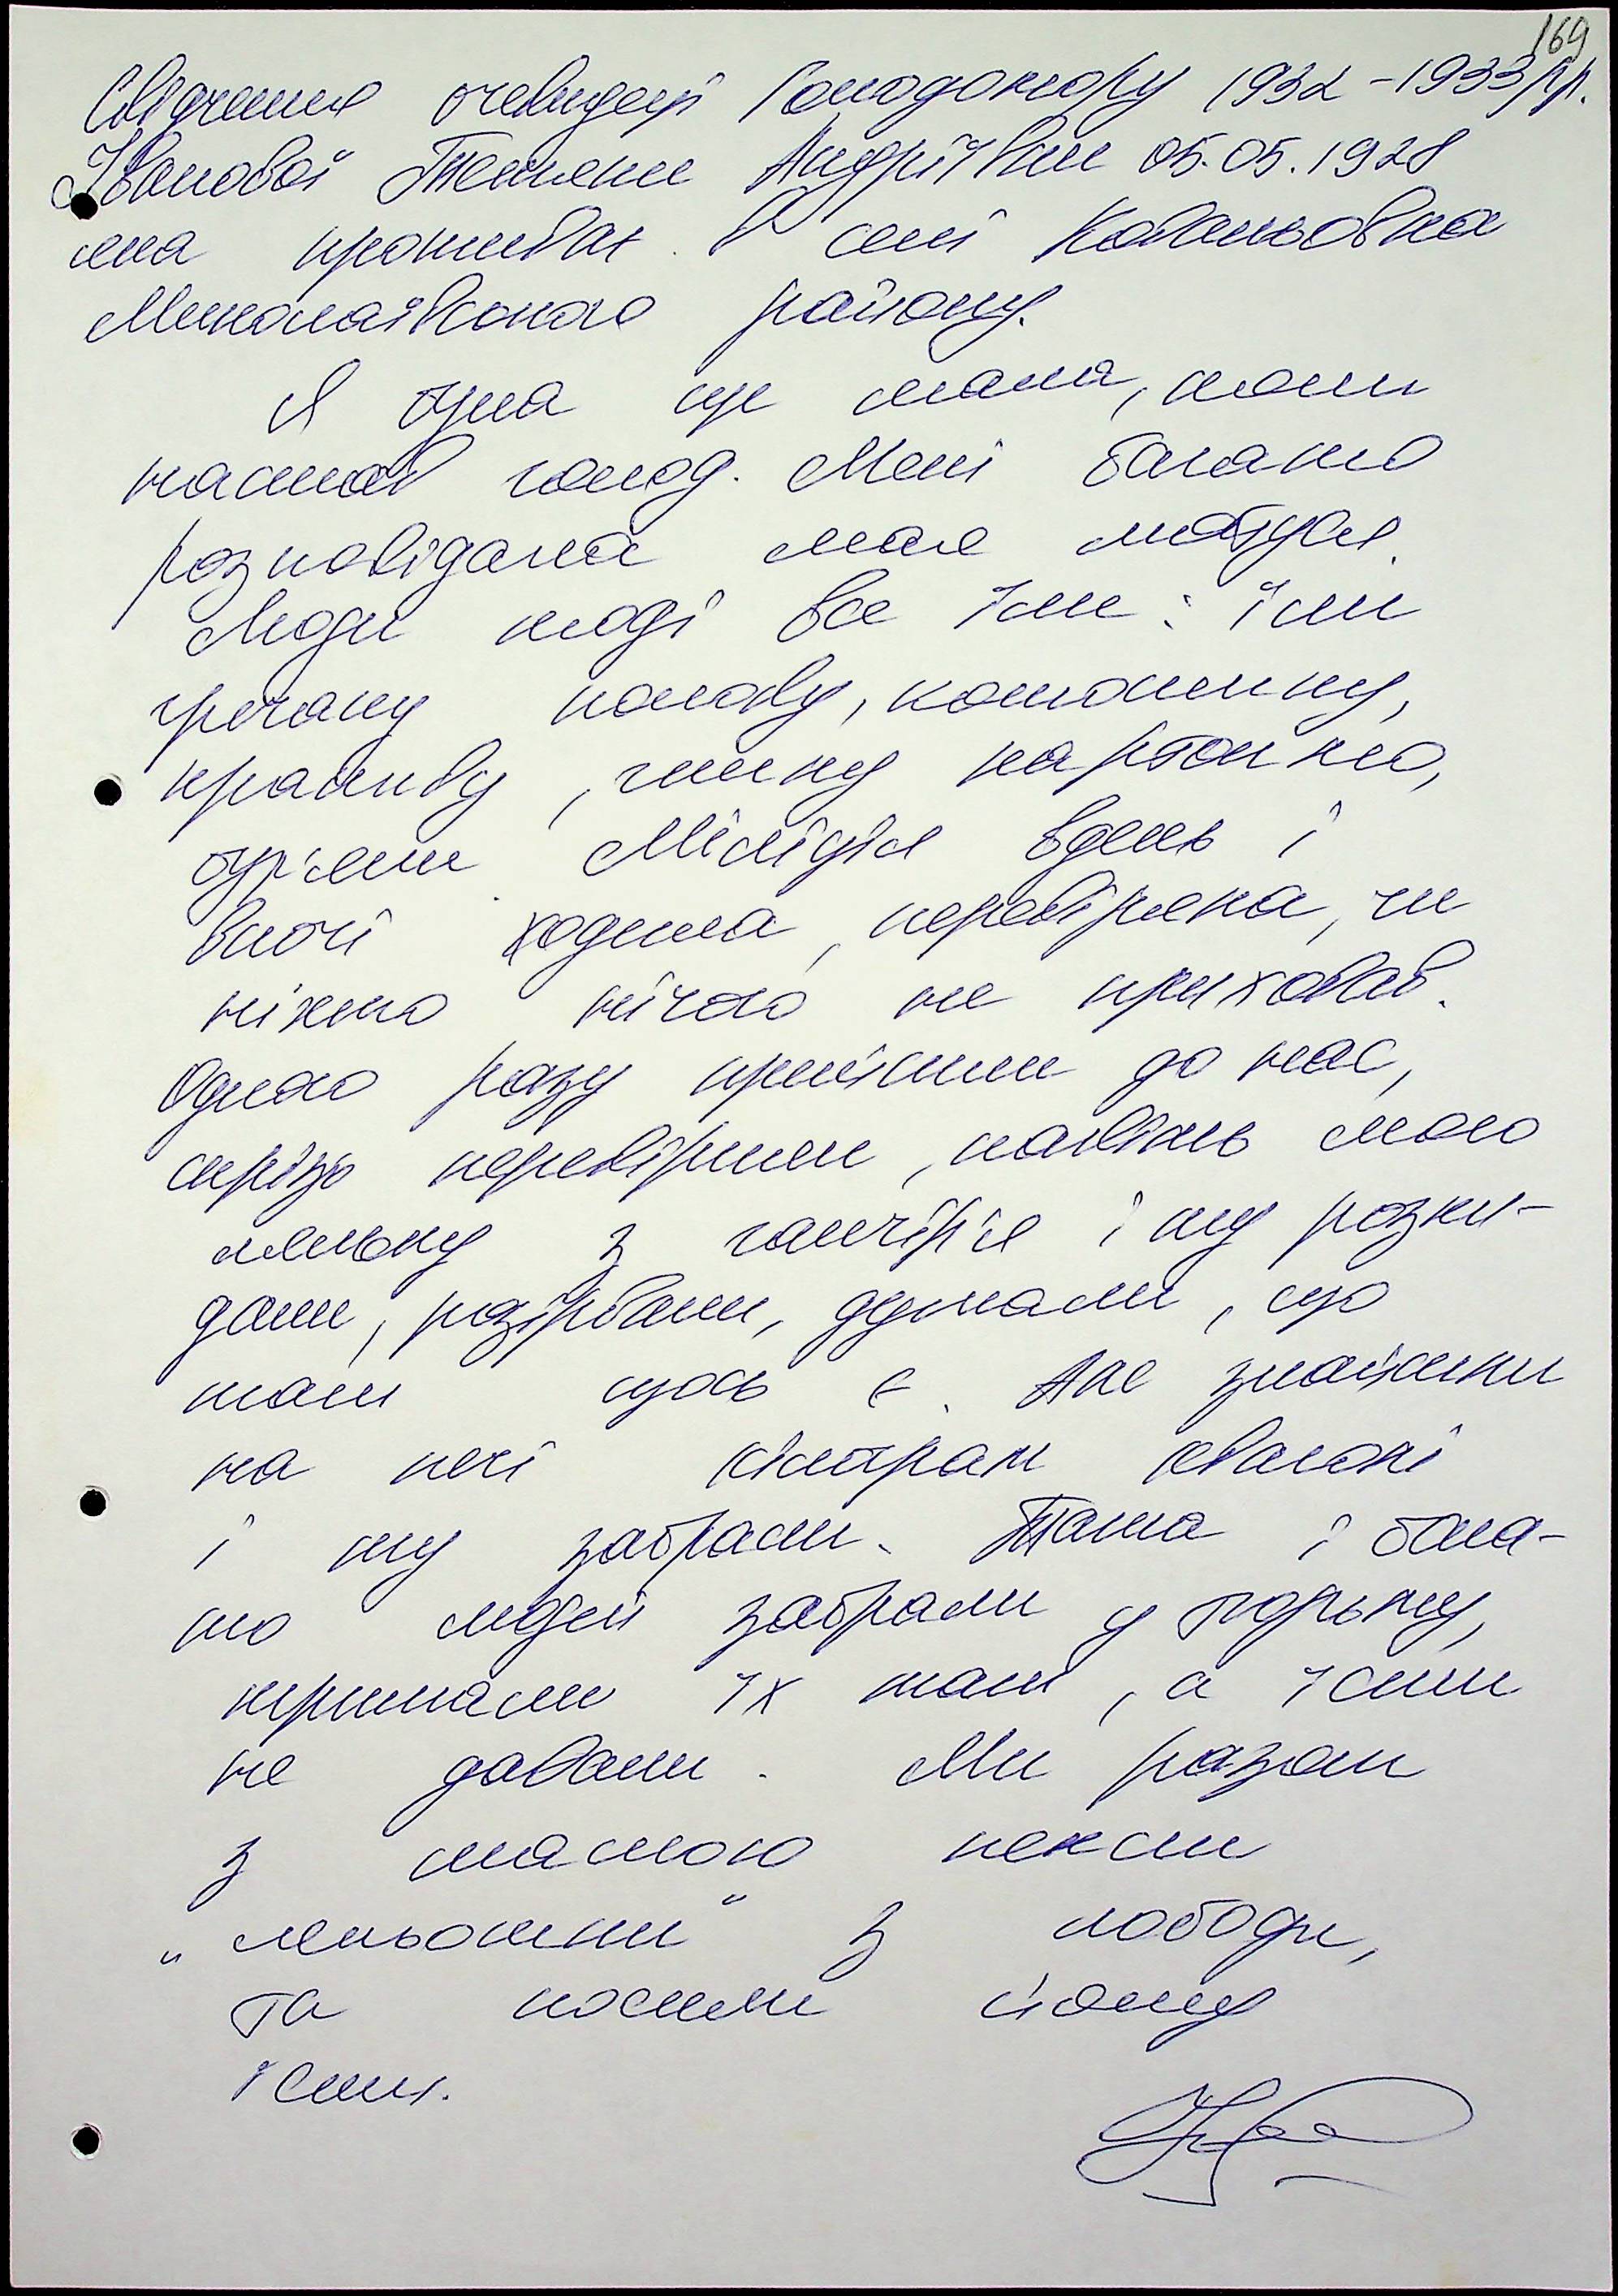 169
Свідчення очевидця Голодомору 1932-1933 рр.
Іванової Тетяни Андріївни 05.05.1928
яка проживає в селі Ковальовка
Миколаївського району.
Я була ще мала, коли
настав голод. Мені багато
розповідала моя матуся.
Люди тоді все їли: їли
гречану полову, конюшину,
кропиву, гнилу картоплю,
бур'яни. Міліція вдень і
вночі ходила, перевіряла, чи
ніхто нічого не приховав.
Одного разу прийшли до нас,
скрізь перевірили, навіть мою
ляльку з ганчір'я і ту розки-
дали, розірвали, думали, що
там щось є. Але знайшли
на печі кілограм квасолі
і ту забрали. Тата і бага-
то людей забрали у тюрьму,
тримали їх там, а їсти
не давали. Ми разом
з мамою пекли
„ляпьошки" з лободи,
та носили йому
їсти.